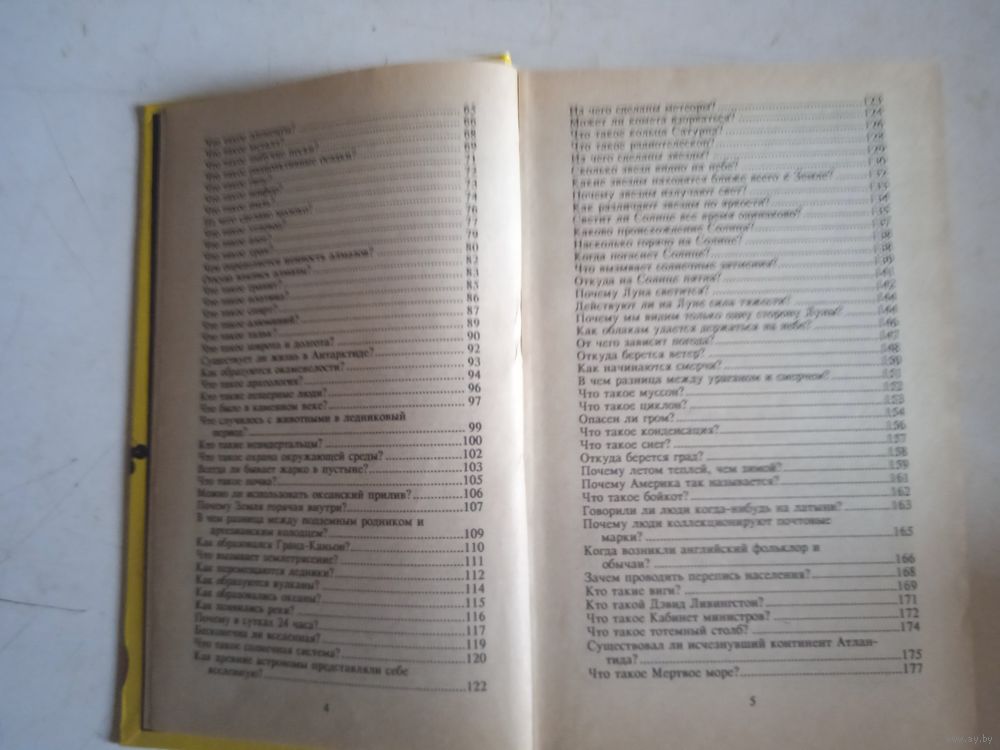 Что такое элементы?
Что такое металл?
Что такое зыбучие пески?
Что такое
Что такое
Что такое
Что такое мел?
Из чего сделано
Что такое
Что такое
Что такое
Чем определяется ценность алмазов? 80
82
Что такое гранит? 83
Что такое платина? 85
Что такое спирт? 86
Что такое алюминий? 87
Что такое тальк? 89
Что такое широта и долгота? 90
Существует ли жизнь в Антарктиде? 92
Как образуются окаменелости? 93
Что такое археология? 94
Кто такие пещерные люди? 96
Что было в каменном веке? 97
Что случилось с животными в ледниковый
период? 99
Кто такие неандертальцы? 100
Что такое охрана окружающей среды? 102
Всегда ли бывает жарко в пустыне? 103
Что такое почва? 105
Можно ли использовать океанский прилив? 106
Почему Земля горячая внутри? 107
В чем разница между подземным родником и
артезианским колодцем? 109
Как образовался Гранд-Каньон? 110
Что вызывает землетрясение? 111
Как перемещаются ледники? 112
Как образуются вулканы? 114
Как образовались океаны? 115
Как появились реки? 116
Почему в сутках 24 часа? 117
Бесконечна ли вселенная? 119
Что такое солнечная система? 120
Как древние астрономы представляли себе
вселенную? 122
4
Из чего сделаны метеоры? 123
Может ли комета взорваться? 124
Что такое кольца Сатурна? 126
Что такое радиотелескоп? 128
Из чего сделаны звезды? 129
Сколько звезд видно на небе? 130
Какие звезды находятся ближе всего к Земле? 132
Почему звезды излучают свет? 133
Как различают звезды по яркости? 134
Светит ли Солнце все время одинаково? 135
Каково происхождение Солнца? 137
Насколько горячо на Солнце? 138
Когда погаснет Солнце? 138
Что вызывает солнечные затмения?
Откуда на Солнце пятна? 141
Почему Луна светится? 142
Действуют ли на Луне сила тяжести? 144
Почему мы видим только одну сторону Луны? 144
Как облакам удается держаться на небе? 146
От чего зависит погода? 147
Откуда берется ветер? 148
Как начинаются смерчи? 150
В чем разница между ураганом и смерчом? 151
Что такое муссон? 152
Что такое циклон? 153
Опасен ли гром? 154
Что такое конденсация? 156
Что такое снег? 157
Откуда берется град? 158
Почему летом теплей, чем зимой? 159
Почему Америка так называется? 161
Что такое бойкот? 162
Говорили ли люди когда-нибудь на латыни? 163
Почему люди коллекционируют почтовые
марки? 165
Когда возникли английский фольклор и
обычаи? 166
Зачем проводить перепись населения? 168
Кто такие виги? 169
Кто такой Дэвид Ливингстон? 171
Что такое Кабинет министров? 172
Что такое тотемный столб? 174
Существовал ли исчезнувший континент Атлан-
тида? 175
Что такое Мертвое море? 177
5
www.ay.by